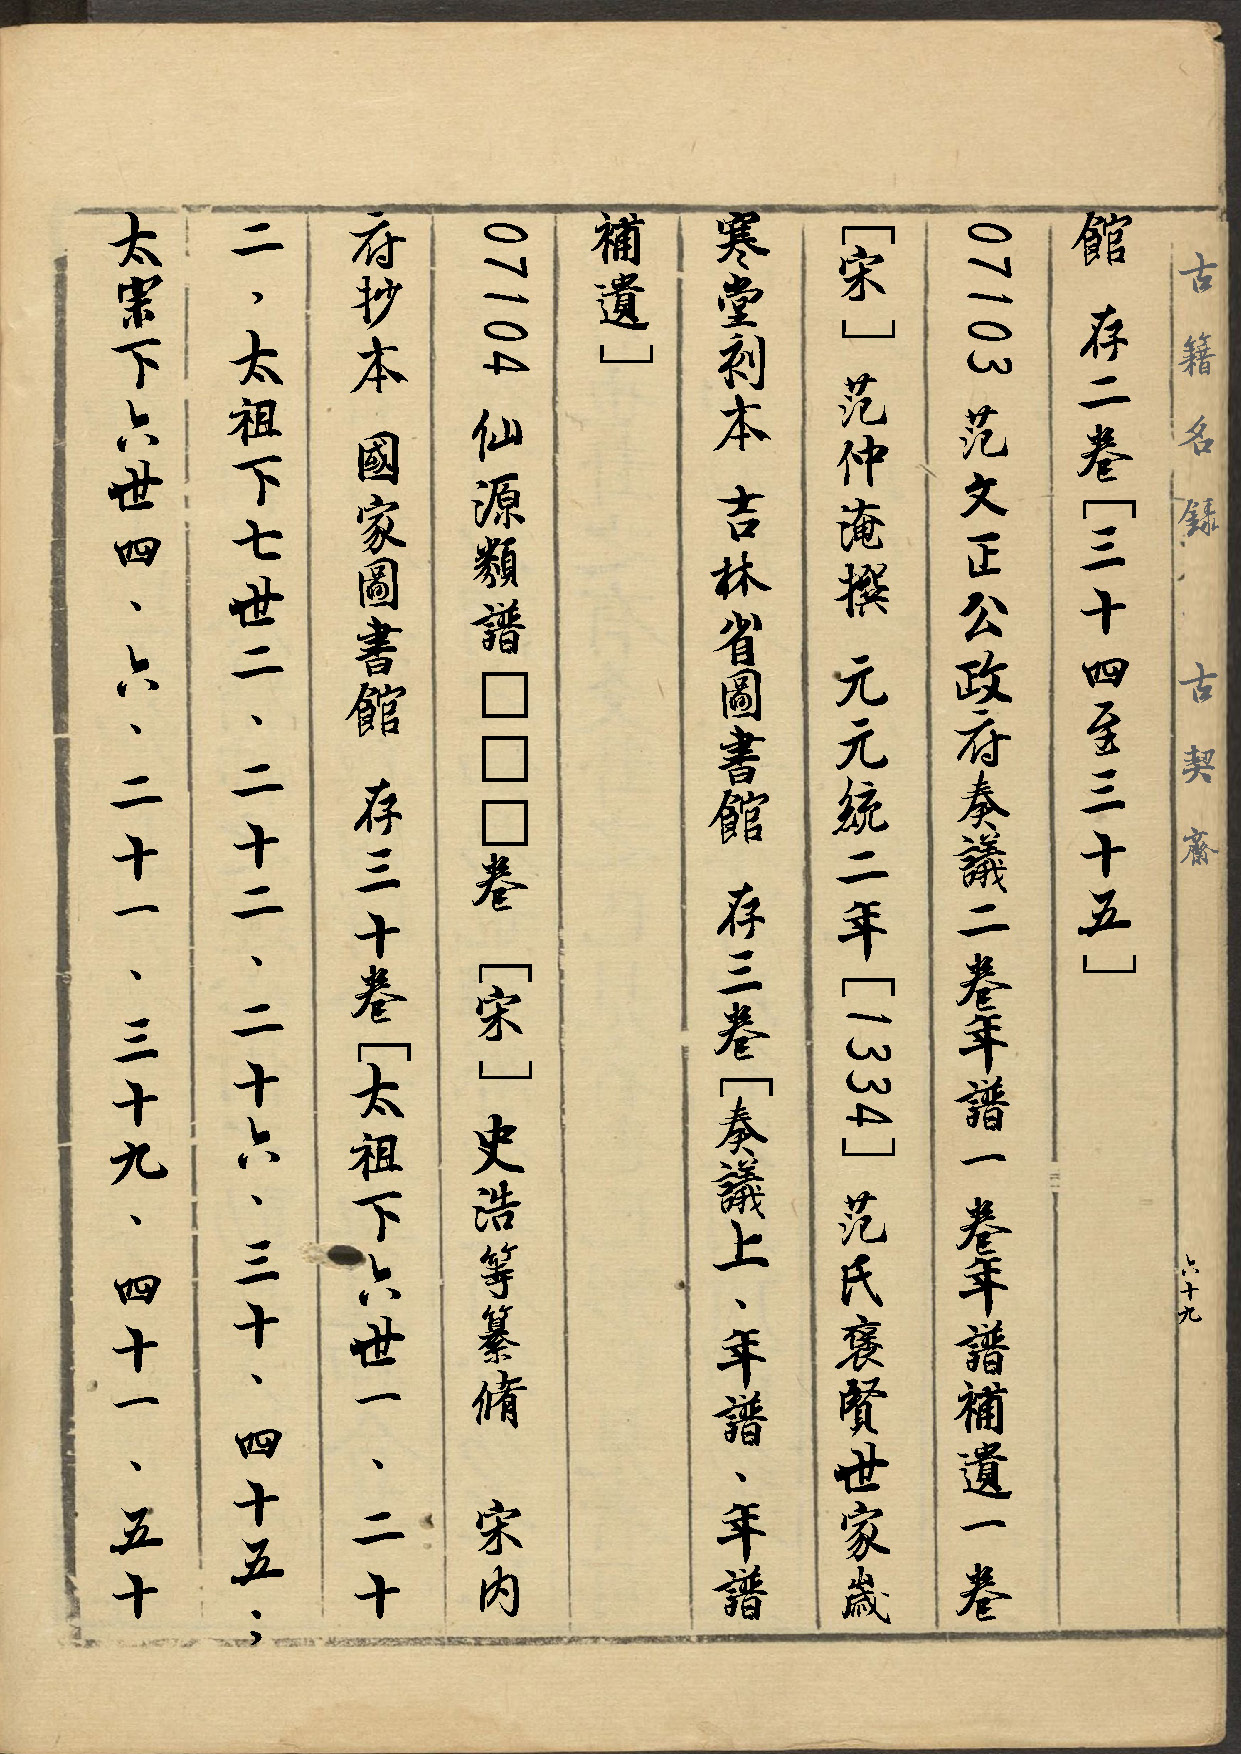 古籍名録 古契齋
六十九
館 存二卷[三十四至三十五]
07103 范文正公政府奏議二卷年譜一卷年譜補遺一卷
[宋]范仲淹撰 元元統二年[1334]范氏褒賢世家歲
寒堂刻本 吉林省圖書館 存三卷[奏議上、年譜、年譜
補遺]
07104 仙源類譜□□□卷 [宋]史浩等纂脩 宋内
府抄本 國家圖書館 存三十卷[太祖下六世一、二十
二、太祖下七世二、二十二、二十六、三十、四十五；、
太宗下六世四、六、二十一、三十九、四十一、五十